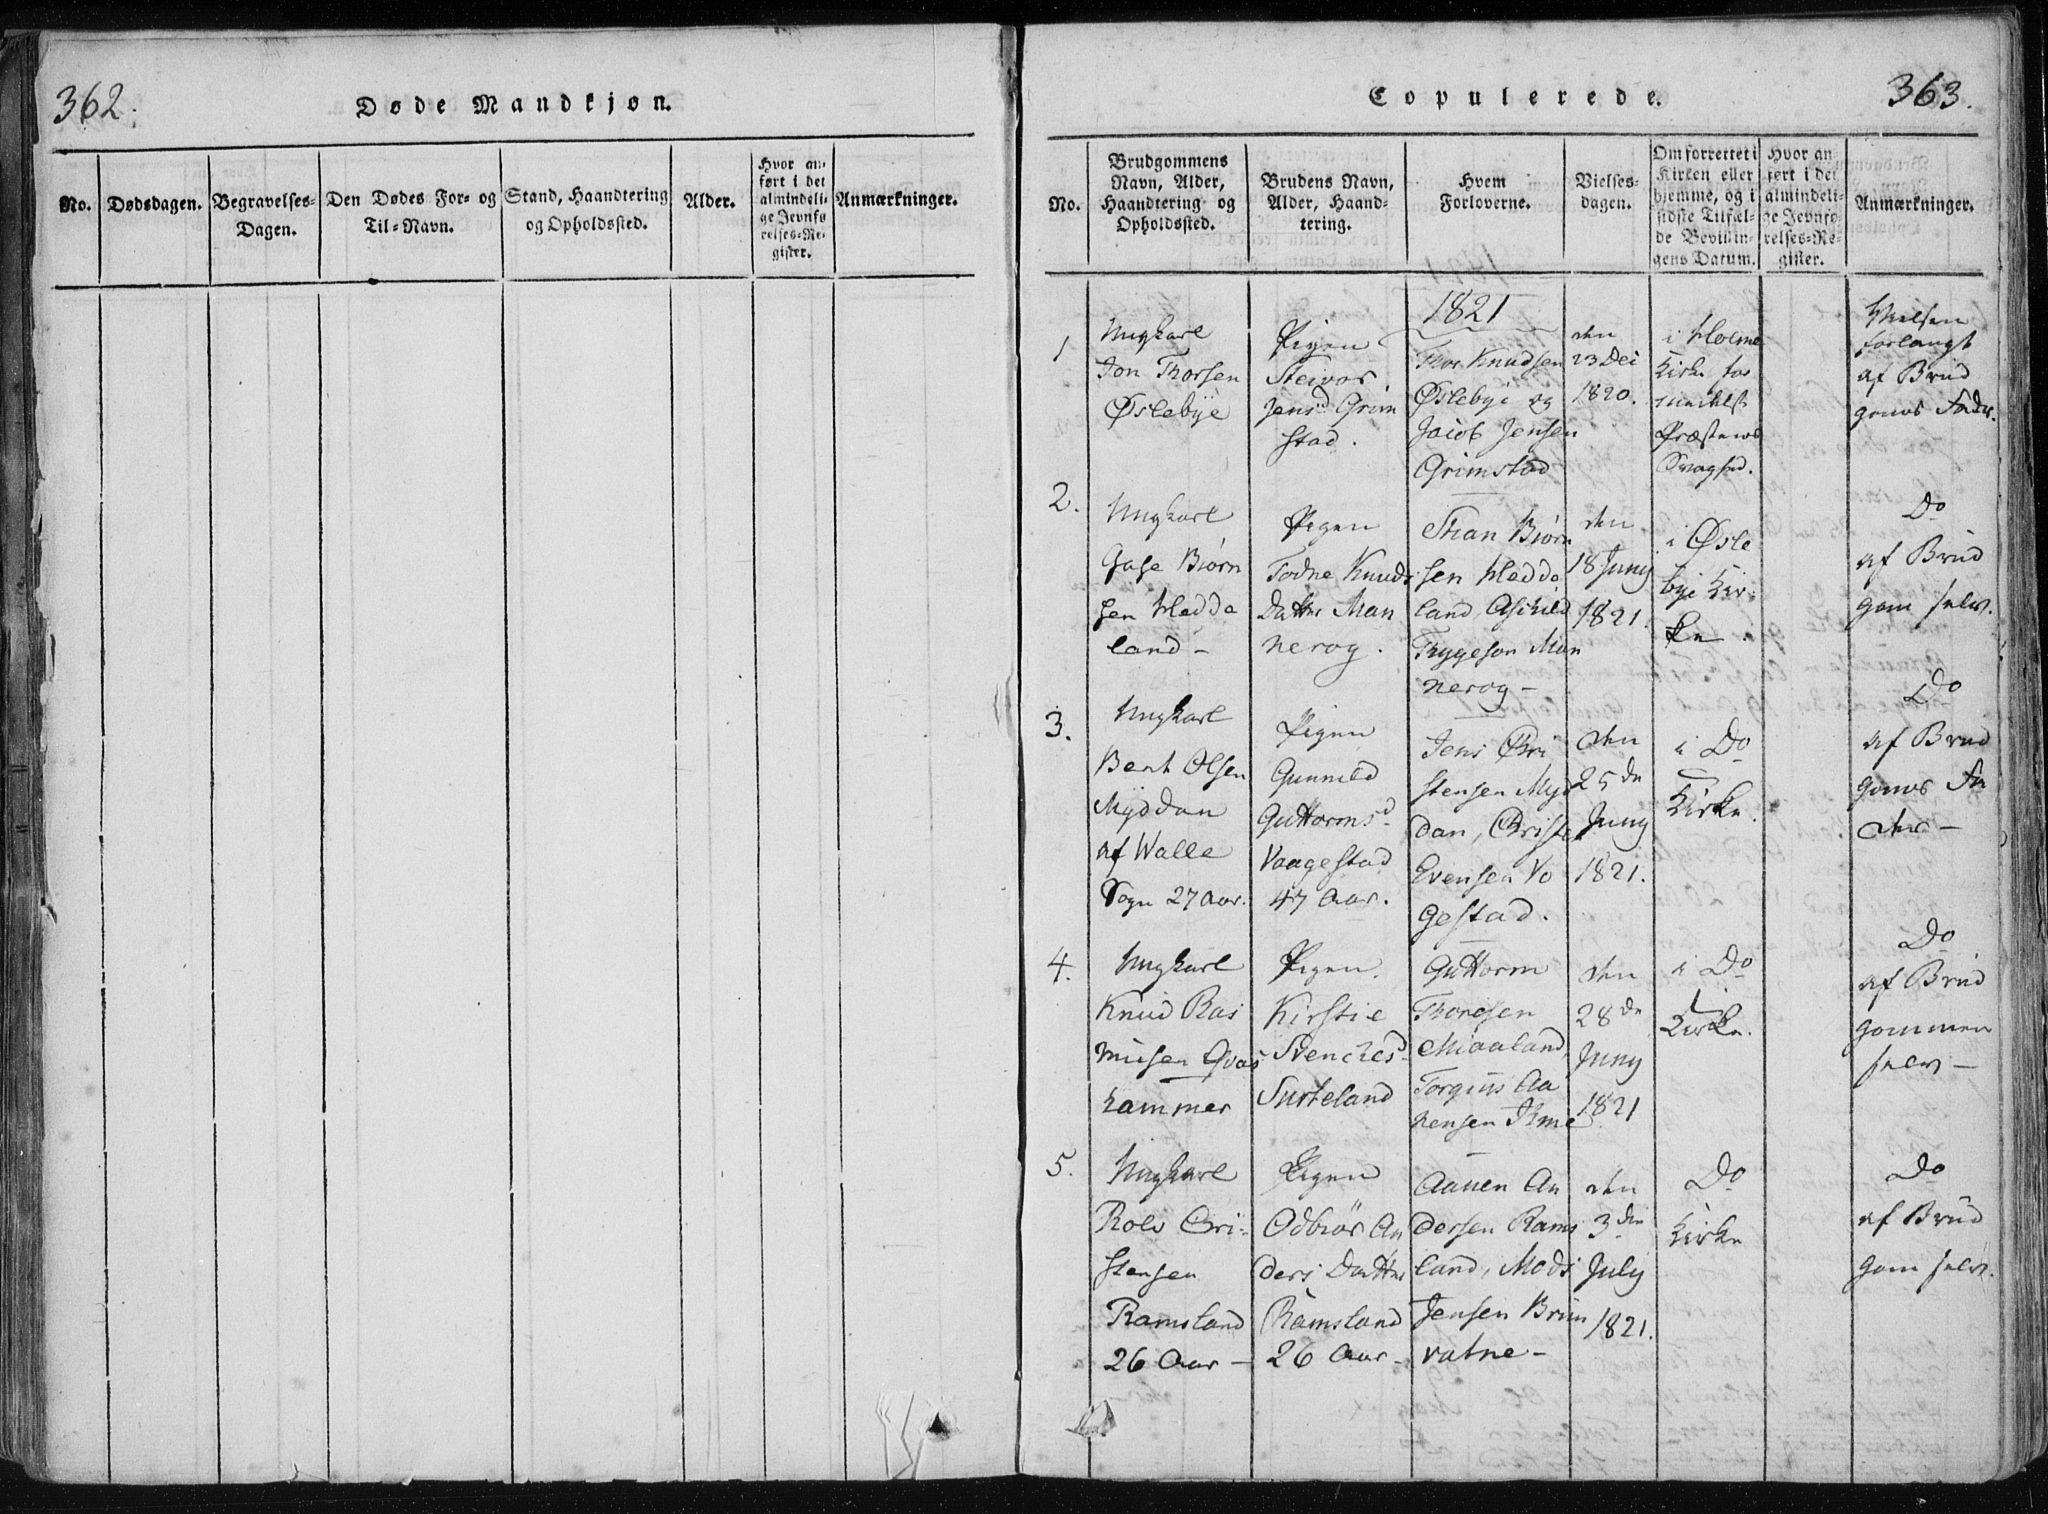 362.
Døde Mandkjøn.
No.
Dødsdagen.
Begravelses-
Dagen.
Den Dødes For- og
Til-Navn.
Stand, Haandtering
og Opholdssted.
Alder.
Hvor an-
ført i det
almindeli-
ge Jevnfø-
relses-Re-
gister.
Anmærkninger.
Copulerede.
363.
No.
Brudgommens
Navn, Alder,
Haandtering og
Opholdssted.
Brudens Navn,
Alder, Haand-
tering.
Hvem
Forloverne.
Vielses-
dagen.
Om forrettet i
Kirken eller
hjemme, og i
sidste Tilfæl-
de Bevillin-
gens Datum.
Hvor an
ført i det
almindeli-
ge Jevnfø-
relses-Re-
gister.
Anmærkninger.
1821
1
Ungkarl
Jon Thorsen
Øslebye
Pigen
Steivor
Jensd Grim
stad.
Thor Knudsen
Øslebye og
Jacob Jensen
Grimstad
den
23 Dec
1820.
i Holme
Kirke for
medelst
Præstens
Svaghed.
Vielsen
forlangt
af Brud
goms Fader.
2.
Ungkarl
Gase Biørn
sen Hedde
land -
Pigen
Todne Knuds
Datter Man
nerog.
Stian Biørn
sen Hedde
land, Aschild
Thygeson Man
nerog -
den
18 Juny
1821.
i Øsle
bye Kir-
ke.
Do
af Brud
gom selv.
3.
Ungkarl
Bent Olsen
Myddan
af Walle
Sogn 27 Aar.
Pigen
Gunnild
Guttormsd
Vaagestad
47 Aar.
Jens Chri
stensen Myd
dan, Christen
Evensen Vo
gestad.
den
25de
Juny
1821.
i Do
Kirke.
Do
af Brud
goms Fa
der -
4.
Ungkarl
Knud Ras
musen Qvas
hammer
Pigen.
Kirstie
Svenchesd
Surteland
Guttorm
Thoresen
Miaaland,
Torgius Aa
nensen Ihme
den
28de
Juny
1821
i Do
Kirke.
Do
af Brud
gommen
selv -
5.
Ungkarl
Rolv Cri-
stensen
Ramsland
26 Aar -
Pigen
Odbiør An
ders Datter
Ramsland
26 Aar -
Aanen An
dersen Rams
land, Mads
Jensen Brun
vatne -
den
3die
July
1821.
Do
Kirke
Do
af Brud
gom selv.